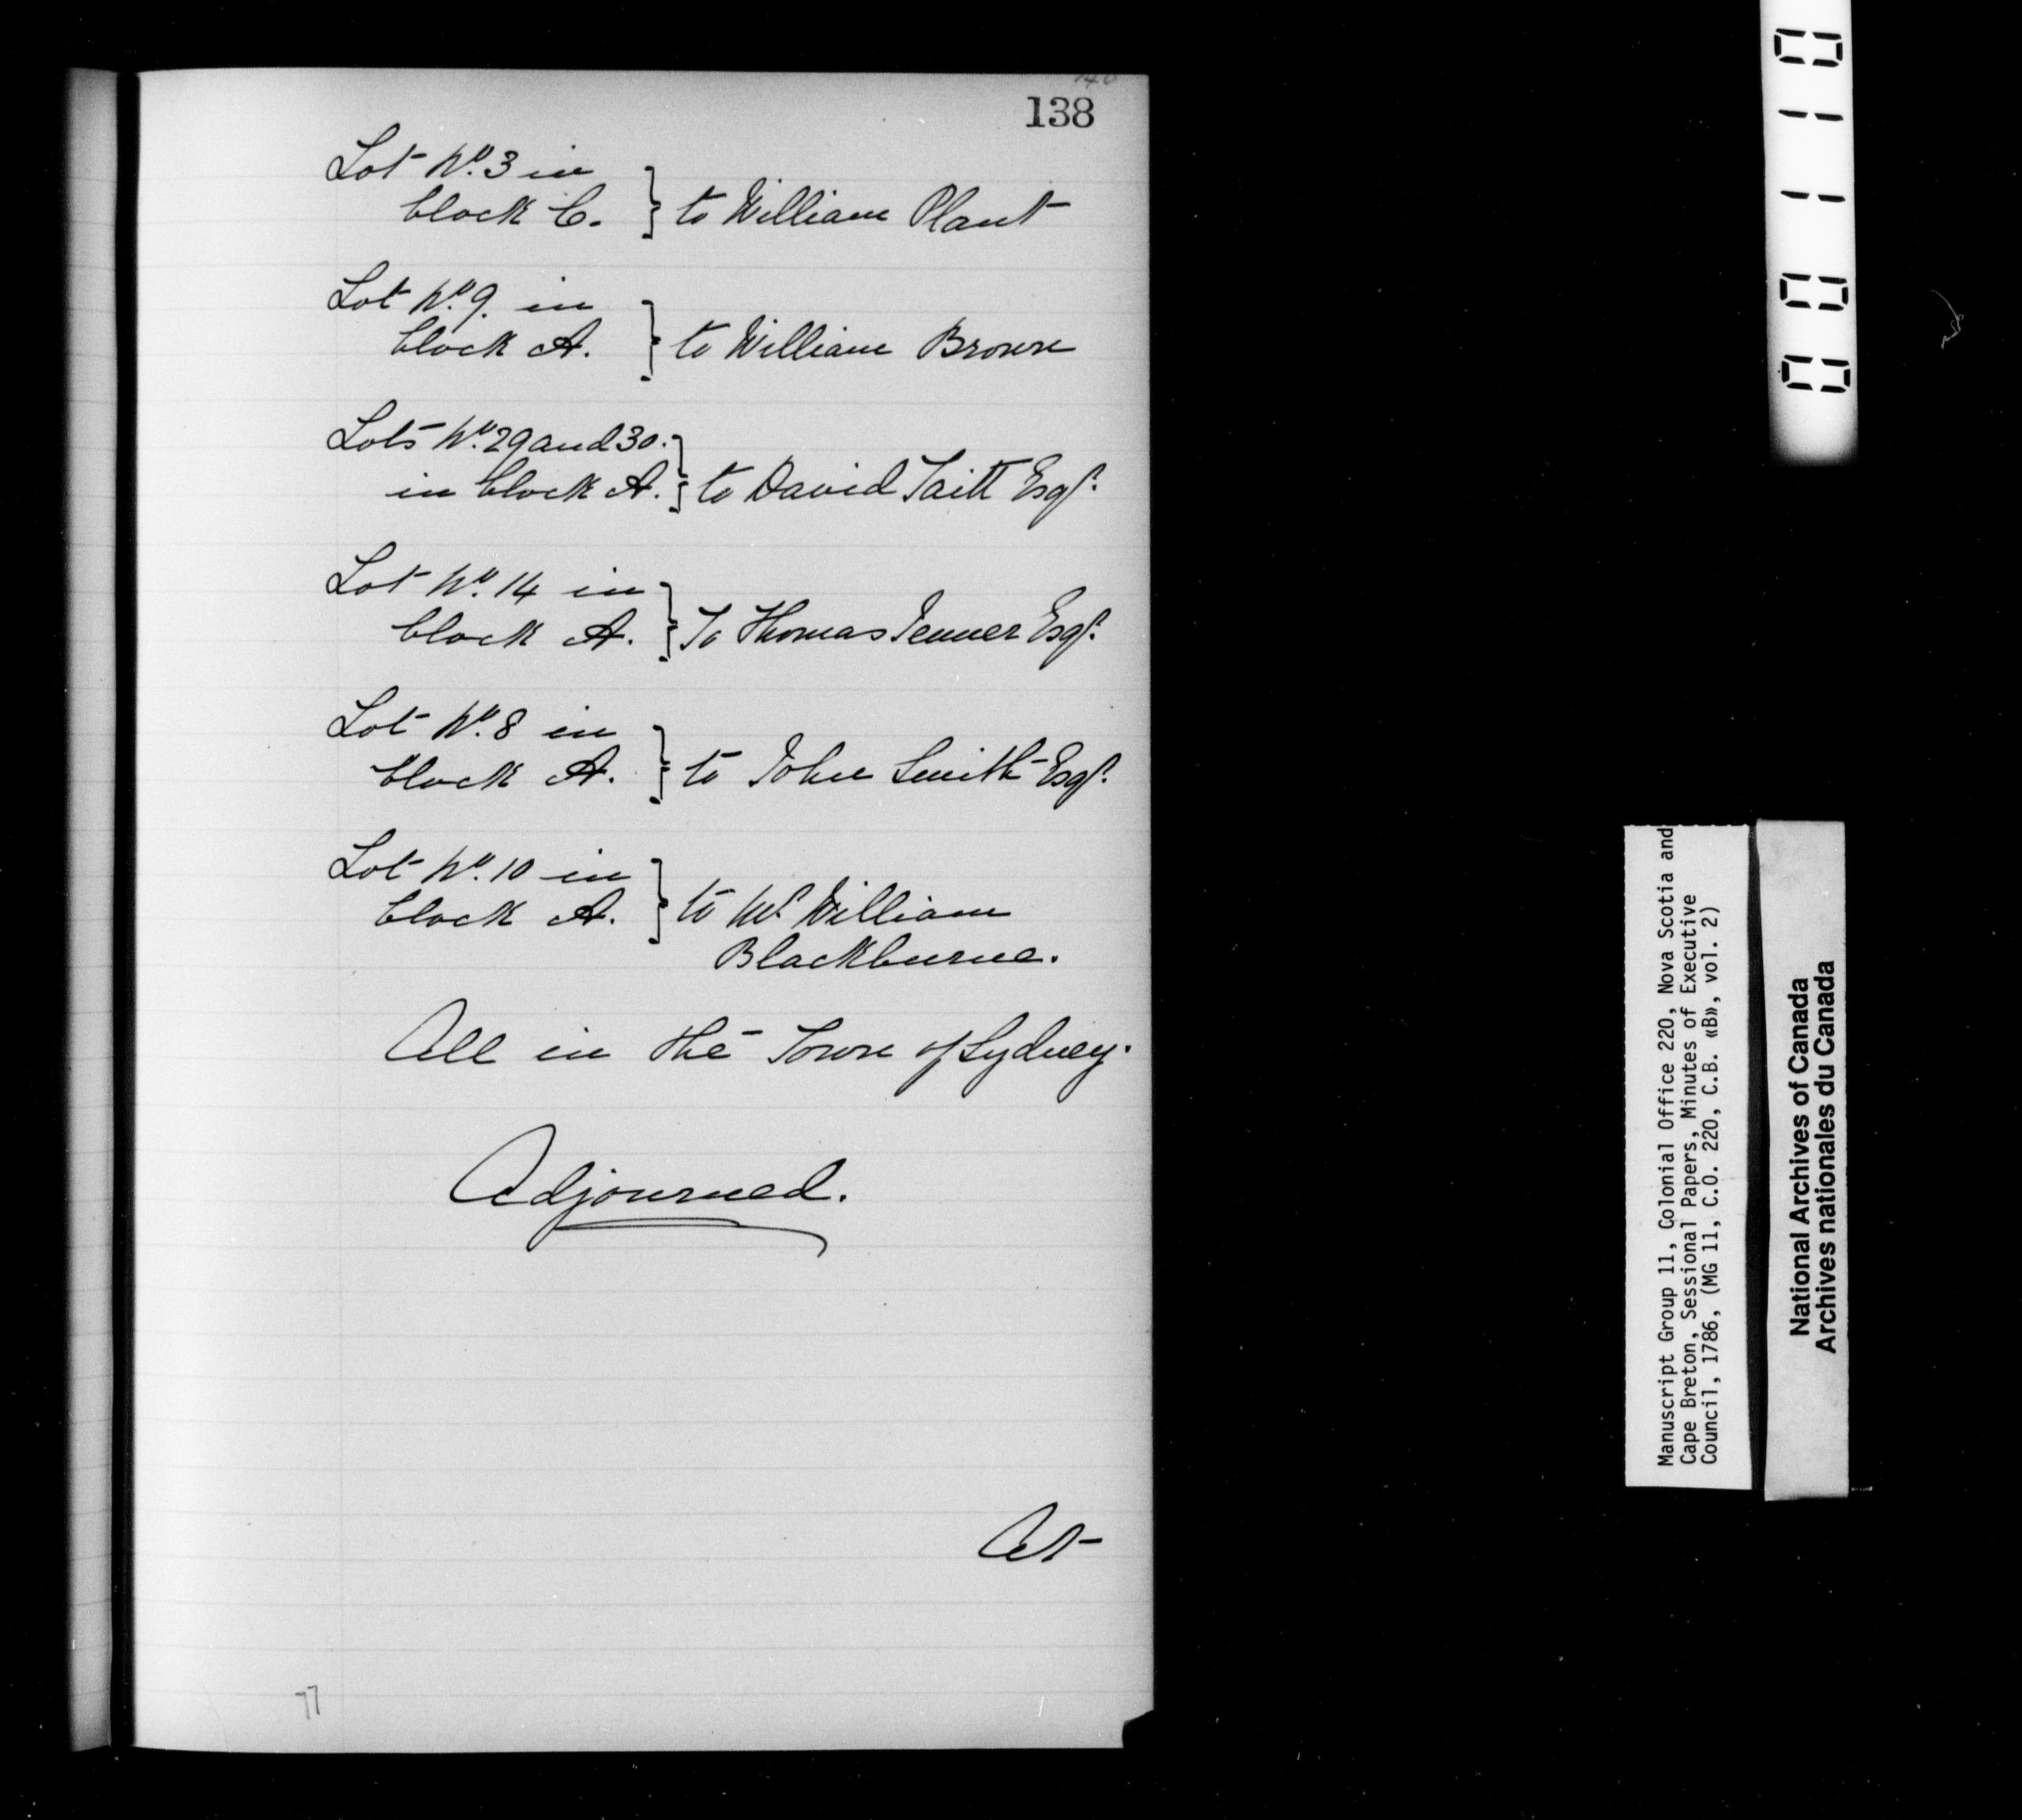 138
Lot No. 3 in
block C. } to William Plant
Lot No. 9. in
block A. } to William Brown
Lots No. 29 and 30.
in block A. } to David Taitt Esqr.
Lot No. 14 in
block A. } To Thomas Jenner Esqr.
Lot No. 8 in
block A. } to John Smith Esqr.
Lot No. 10 in
block A. } to Mr. William
Blackburne.
All in the Town of Sydney.
Adjourned.
At
77
00110
Manuscript Group 11, Colonial Office 220, Nova Scotia and
Cape Breton, Sessional Papers, Minutes of Executive
Council, 1786, (MG 11, C.O. 220, C.B. «B», vol. 2)
National Archives of Canada
Archives nationales du Canada